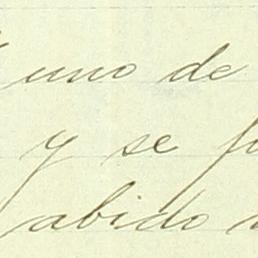 uno de
y se
abido